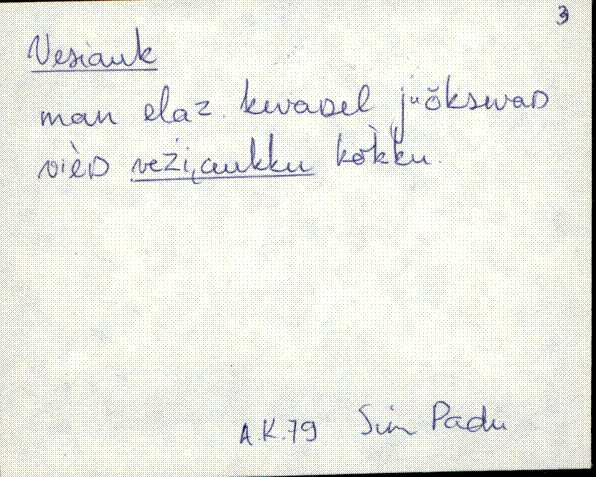 3
Vesiauk
man elaz kevaDel juŏkswaD
vièD veži̮aukku kòkku.
A.K.79 Sim Padu